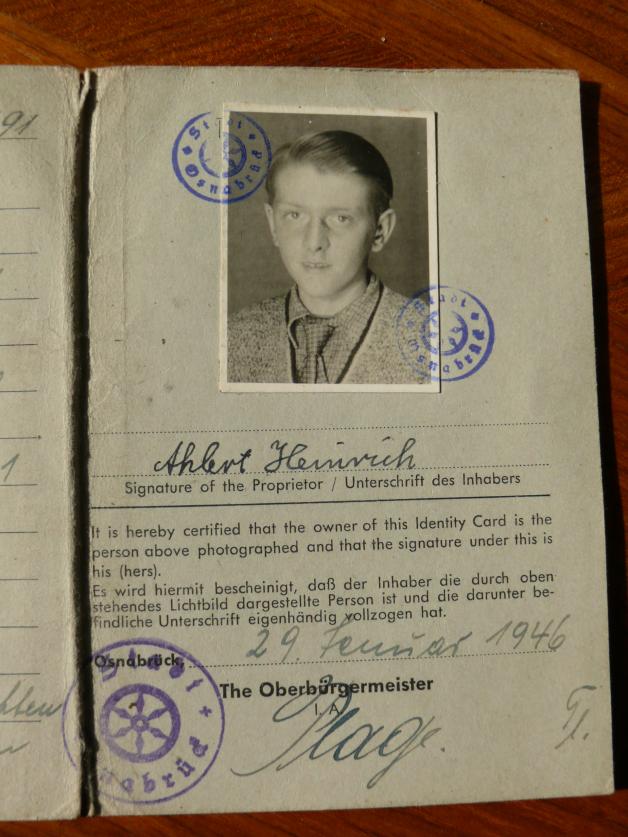 91
1
Stadt
Osnabrück
Stadt
Osnabrück
Ahlert Heinrich
Signature of the Proprietor / Unterschrift des Inhabers
It is hereby certified that the owner of this Identity Card is the
person above photographed and that the signature under this is
his (hers).
Es wird hiermit bescheinigt, daß der Inhaber die durch oben
stehendes Lichtbild dargestellte Person ist und die darunter be-
findliche Unterschrift eigenhändig vollzogen hat.
Osnabrück, 29. Januar 1946
The Oberbürgermeister
I. A.
Stadt
Osnabrück